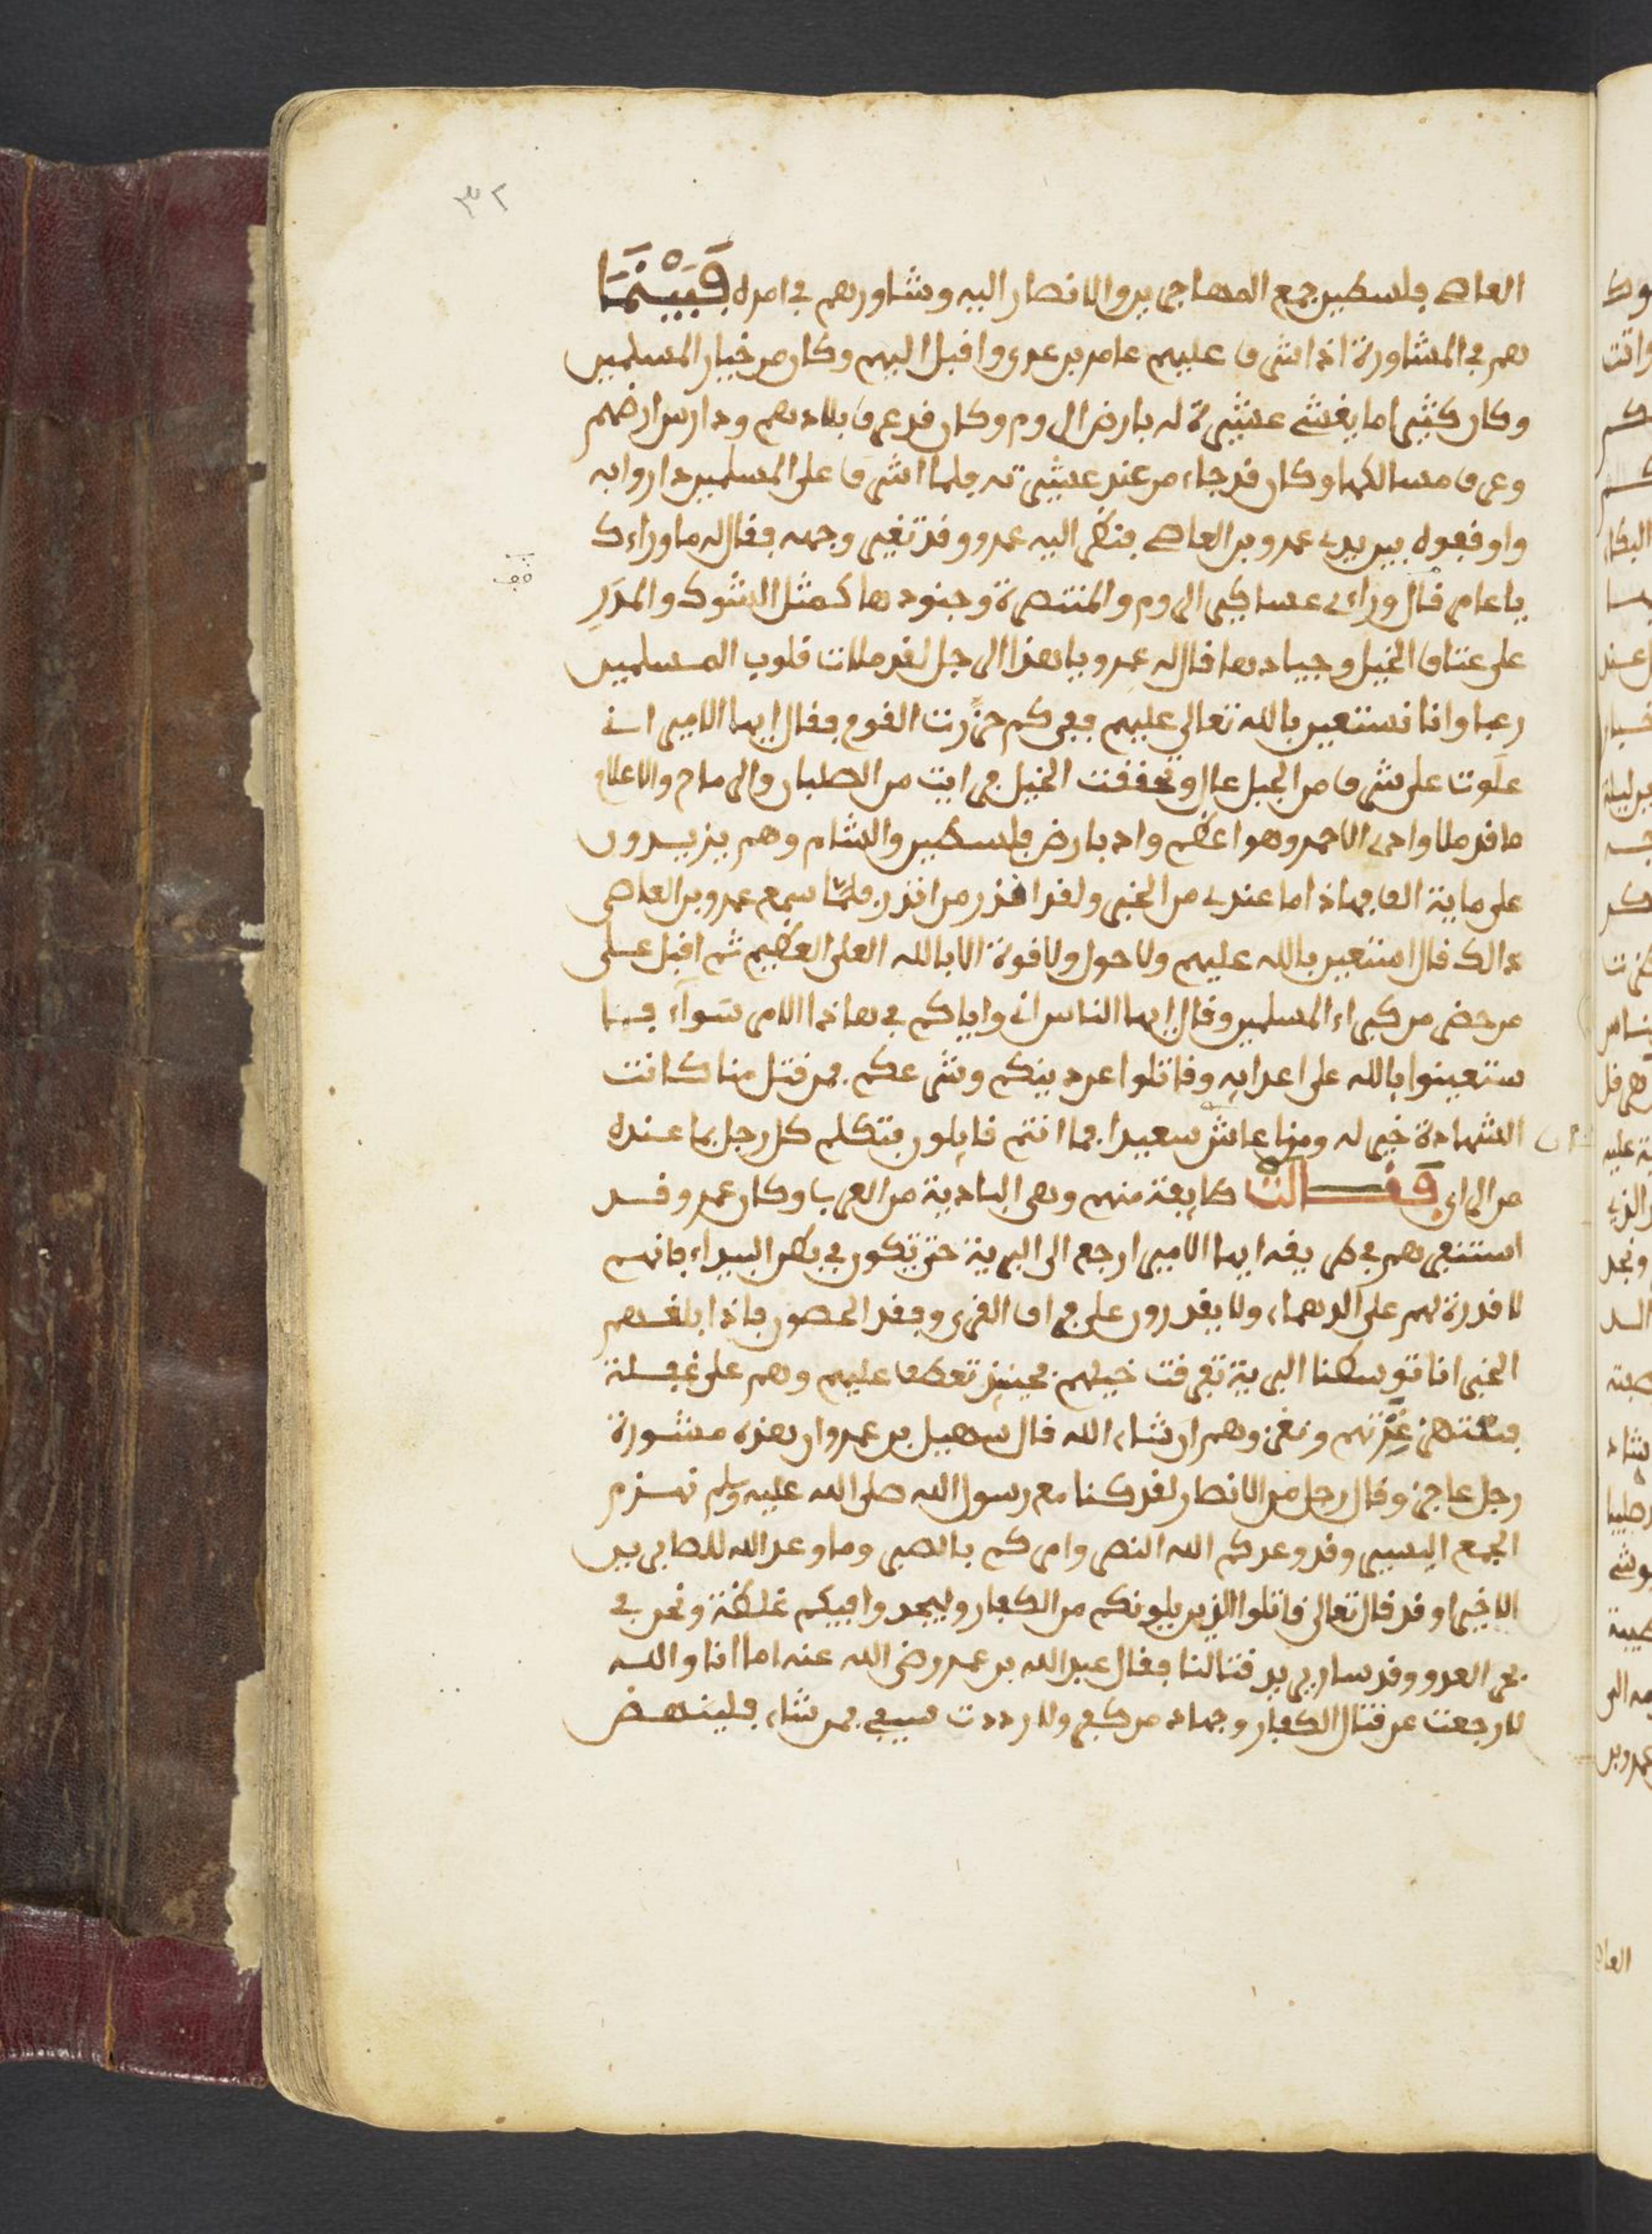 ٣٢
العاصي بفلسطين جمع المهاجرين والانصار اليه وشاورهم في امره فَبَيْنَمَا
هم في المشاورة اذ اشرف عليهم عامر بن عدي واقبل اليهم وكان من خيار المسلمين
وكان كثيرا ما يغشى عشيرة له بارض الروم وكان قد عرف بلادهم ودارس ارضهم
وعرف مسالكها وكان قد جاء من عند عشيرته فلما اشرف على المسلمين داروا به
واوقفوه بين يدي عمرو بن العاصي فنظر اليه عمرو وقد تغير وجهه فقال له ما وراءك
يا عامر قال وراءي عساكر الروم والمنتصرة وجنودها كمثل الشوك والمدَرِ
على عتاق الخيل وجيادها قال له عمرو يا هذا الرجل لقد ملات قلوب المسلمين
رعبا وانا نستعين بالله تعالى عليهم ففي كم حزرت القوم فقال ايها الامير اني
علوت على شرف من الجبل عال وتحققت الخيل فرايت من الصلبان والرماح والاعلام
ما قد ملا وادي الاحمر وهو اعظم واد بارض فلسطين والشام وهم يزيدون
على ماية الف فهاذا ما عندي من الخبر ولقد اعذر من انذر فلمّا سمع عمرو بن العاصي
ذالك قال استعين بالله عليهم ولا حول ولا قوة الا بالله العلي العظيم ثم اقبل على
من حضر من كبراء المسلمين وقال ايها الناس اني واياكم في هاذا الامر سَواء فا
ستعينوا بالله على اعدايه وقاتلوا عن دينكم وشرعكم فمن قتل منا كانت
الشهادة خير له ومن عاش عاش سعيدا فما انتم قايلون فتكلم كل رجل بما عنده
من الراي فقالت طايفة منهم وهي البادية من العرب وكان عمرو قد
استنفرهم في طريقه ايها الامير ارجع الى البرية حتى تكون في بطن البيداء فانهم
لا قدرة لهم على الدهماء ولا يقدرون على فراق القرى وفقد الحصون فاذا بلغهم
الخبر انا توسطنا البرية تفرقت خيلهم فحينئذ تعطف عليهم وهم على غفلة
غِرّتهم ونغزوهم ان شاء الله قال سهيل بن عمرو ان هذه مشورة
رجل عاجز وقال رجل من الانصار لقد كنا مع رسول الله صلى الله عليه وسلم نهزم
الجمع اليسير وقد وعدكم الله النصر وامركم بالصبر وما وعد الله للصابرين
الا خيرا وقد قال تعالى قاتلوا الذين يلونكم من الكفار وليجدوا فيكم غلظة ونحن في
العدو وقد سار يريد قتالنا فقال عبد الله بن عمر رضي الله عنه اما انا والله
لا رجعت عن قتال الكفار وجهاد من كفر ولا رددت سيفي فمن شاء فلينهض